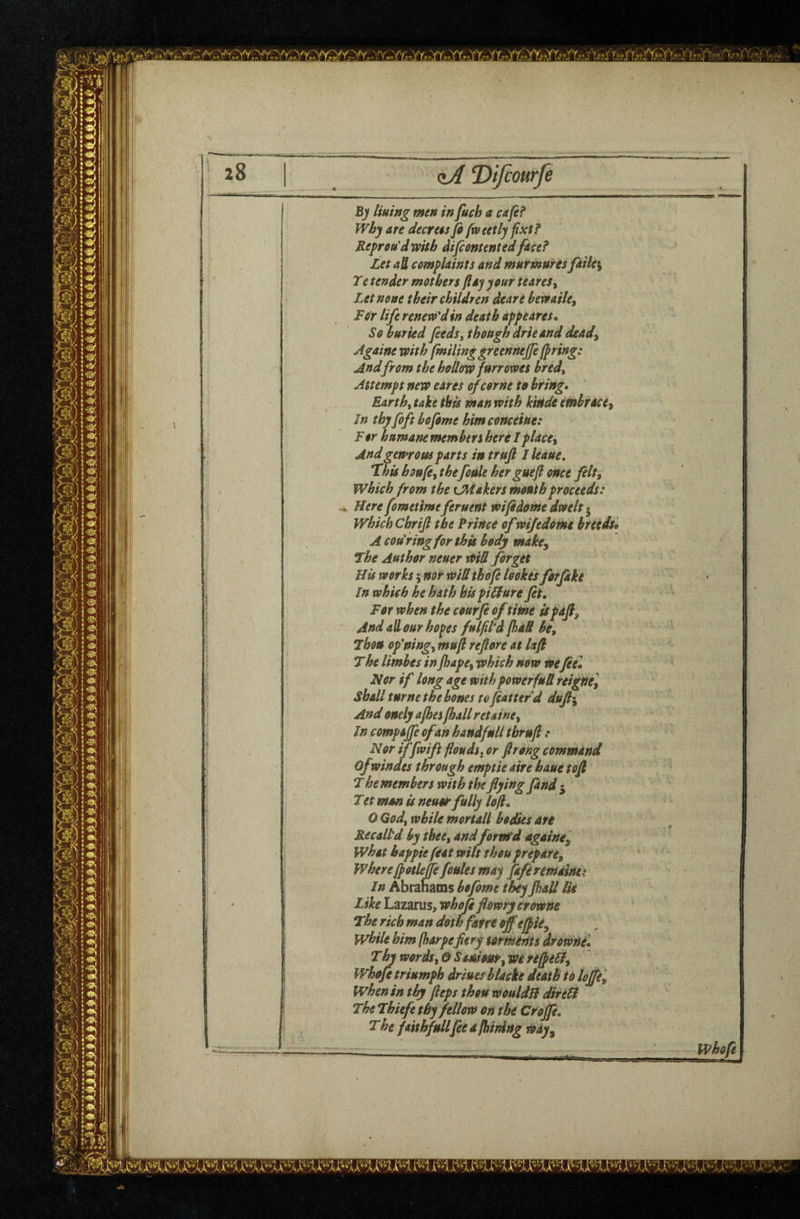 28 A Diſcourſe
By liuing men in ſuch a caſe?
Why are decrees ſo ſweetly fixt?
Reprou'd with diſcontented face?
Let all complaints and murmures faile;
Ye tender mothers ſtay your teares,
Let none their children deare bewaile,
For life renew'd in death appeares.
So buried ſeeds, though drie and dead,
Againe with ſmiling greenneſſe ſpring:
And from the hollow furrowes bred,
Attempt new eares of corne to bring.
Earth, take this man with kinde embrace,
In thy ſoft boſome him conceiue:
For humane members here I place,
And gen'rous parts in truſt I leaue.
This houſe, the ſoule her gueſt once felt,
Which from the Makers mouth proceeds:
Here ſometime feruent wiſedome dwelt;
Which Chriſt the Prince of wiſedome breeds.
A cou'ring for this body make,
The Author neuer will forget
His works; nor will thoſe lookes forſake
In which he hath his picture ſet.
For when the courſe of time is paſt,
And all our hopes fulfil'd ſhall be,
Thou op'ning, muſt reſtore at laſt
The limbes in ſhape, which now we ſee.
Nor if long age with powerfull reigne,
Shall turne the bones to ſcatter'd duſt;
And onely aſhes ſhall retaine,
In compaſſe of an handfull thruſt:
Nor if ſwift flouds, or ſtrong command
Of windes through emptie aire haue toſt
The members with the flying ſand;
Yet man is neuer fully loſt.
O God, while mortall bodies are
Recall'd by thee, and form'd againe,
What happie ſeat wilt thou prepare,
Where ſpotleſſe ſoules may ſafe remaine?
In Abrahams boſome they ſhall lie
Like Lazarus, whoſe flowry crowne
The rich man doth farre off eſpie,
While him ſharpe fiery torments drowne.
Thy words, O Sauiour, we reſpect,
Whoſe triumph driues blacke death to loſſe,
When in thy ſteps thou wouldſt direct
The Thiefe thy fellow on the Croſſe.
The faithfull ſee a ſhining way,
Whoſe